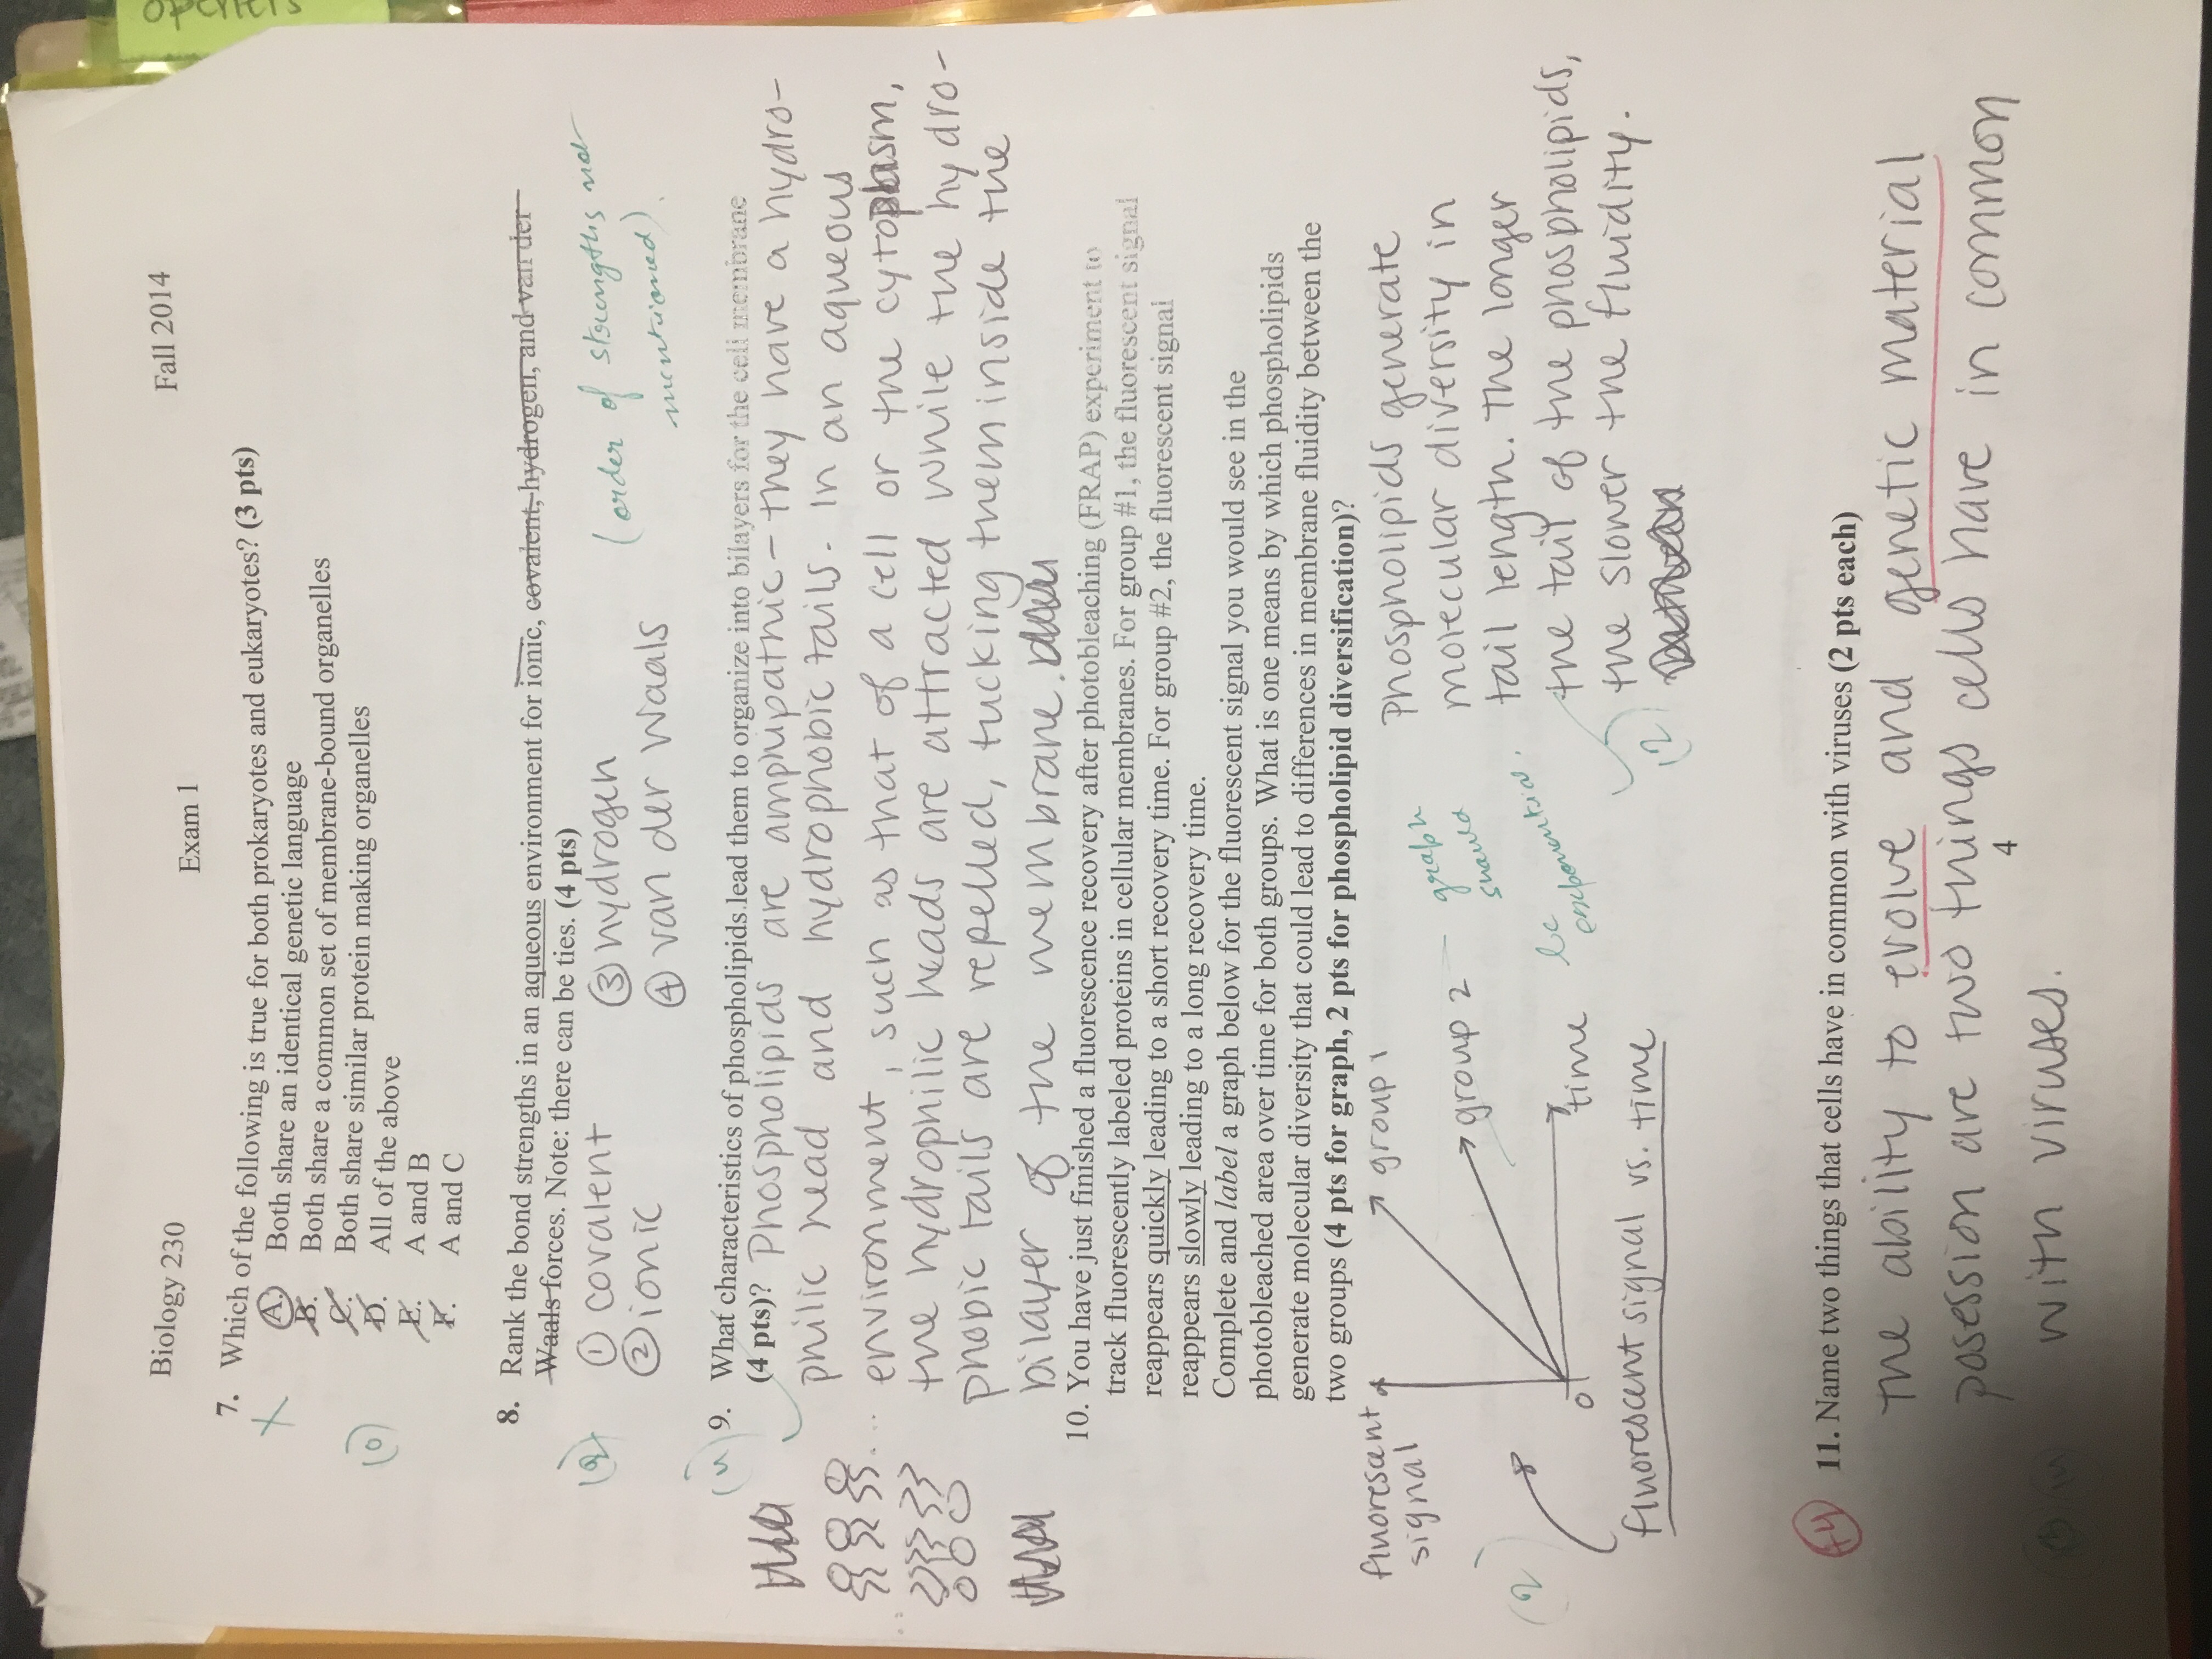 operons
Biology 230
Fall 2014
Exam 1
7. Which of the following is true for both prokaryotes and eukaryotes? (3 pts)
X
A. Both share an identical genetic language
B. Both share a common set of membrane-bound organelles
C. Both share similar protein making organelles
(0)
D. All of the above
E. A and B
F. A and C
8. Rank the bond strengths in an aqueous environment for ionic, covalent, hydrogen, and van der
Waals forces. Note: there can be ties. (4 pts)
(2)
① covalent ③ hydrogen
② ionic ④ van der Waals
(order of strengths not
mentioned).
(4) 9. What characteristics of phospholipids lead them to organize into bilayers for the cell membrane
(4 pts)? Phospholipids are amphipathic - they have a hydro-
philic head and hydrophobic tails. In an aqueous
environment, such as that of a cell or the cytoplasm,
the hydrophilic heads are attracted while the hydro-
phobic tails are repelled, tucking them inside the
bilayer of the membrane.
10. You have just finished a fluorescence recovery after photobleaching (FRAP) experiment to
track fluorescently labeled proteins in cellular membranes. For group #1, the fluorescent signal
reappears quickly leading to a short recovery time. For group #2, the fluorescent signal
reappears slowly leading to a long recovery time.
Complete and label a graph below for the fluorescent signal you would see in the
photobleached area over time for both groups. What is one means by which phospholipids
generate molecular diversity that could lead to differences in membrane fluidity between the
two groups (4 pts for graph, 2 pts for phospholipid diversification)?
fluorescent
signal
group 1
group 2
0
time
fluorescent signal vs. time
(2)
graph
should
be
exponential.
Phospholipids generate
molecular diversity in
tail length. The longer
the tail of the phospholipids,
the slower the fluidity.
(2)
+4
11. Name two things that cells have in common with viruses (2 pts each)
The ability to evolve and genetic material
posession are two things cells have in common
4
with viruses.